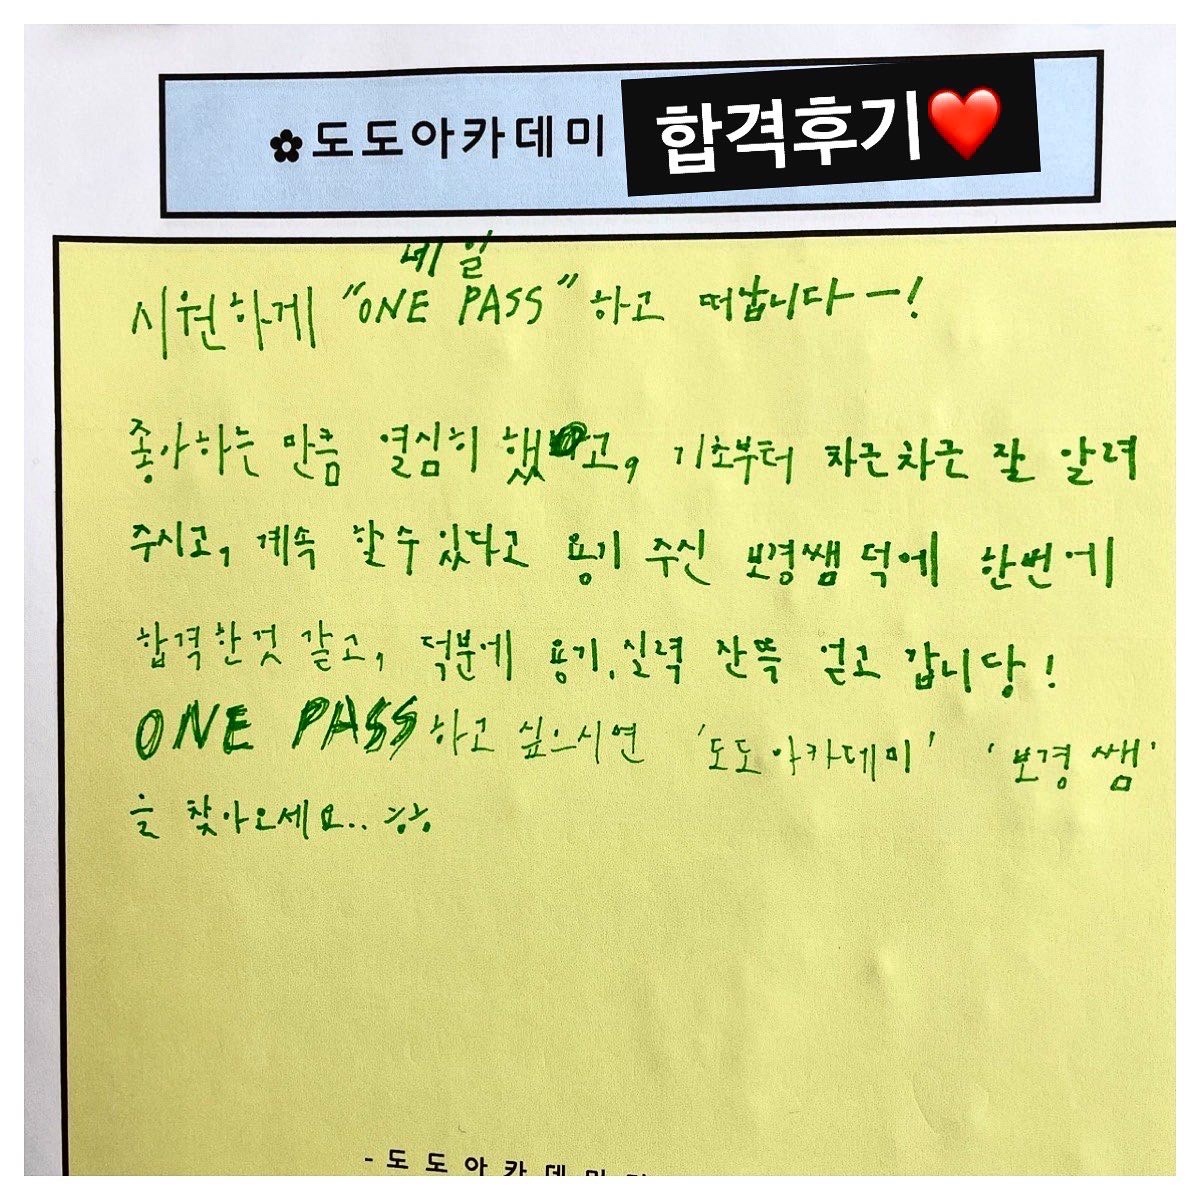 ✿도도아카데미 합격후기❤️
네일
시원하게 "ONE PASS" 하고 떠납니다ㅡ!
좋아하는 만큼 열심히 했고, 기초부터 차근차근 잘 알려
주시고, 계속 할수있다고 용기 주신 보경쌤 덕에 한번에
합격한것 같고, 덕분에 용기, 실력 잔뜩 얻고 갑니당!
ONE PASS 하고 싶으시면 '도도아카데미' '보경쌤'
을 찾아오세요.. ㅎㅎ
- 도 도 아 카 데 미